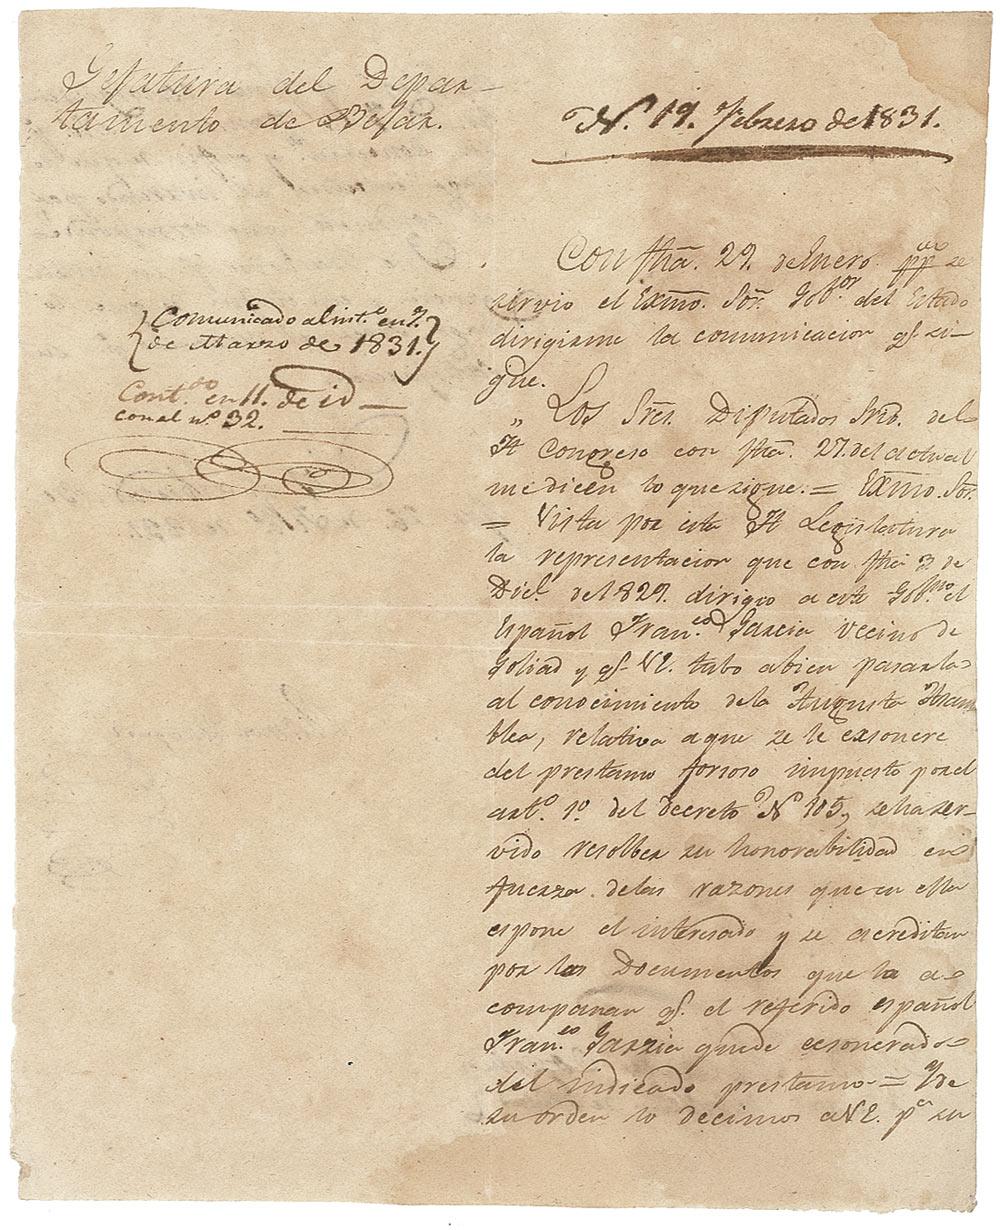 Gefatura del Depar-
tamento de Bejar.
N. 19. Febrero de 1831.
{Comunicado al int.º en 7.}
{de Marzo de 1831.}
Cont.do en 11. de id
con el nº 32.
Con fha. 29. de Enero pp.do se
sirvio el Exmo. Sor. Gob.or del Estado
dirigirme la comunicacion q.e si-
gue.
„ Los Sres. Diputados Srios. del
H Congreso con fha. 27. del actual
me dicen lo que sigue. = Exmo. Sor.
= Vista por esta H Legislatura
la representacion que con fha 3 de
Dic.e del 829. dirigio a este Gob.no el
Español Fran.co Garcia vecino de
Goliad y q.e V.E. tubo a bien pasarla
al conocimiento de la Augusta Asam
blea, relativa a que se le exsonere
del prestamo forsoso impuesto por el
art.º 1º. del Decreto Nº 105, se ha ser-
vido resolber su honorabilidad en
fuerza de las razones que en ella
espone el interesado y se acreditan
por los Documentos que la a-
compañan q.e el referido español
Fran.co Garzia quede exsonerado
del indicado prestamo = Y de
su orden lo decimos a V.E. p.a su